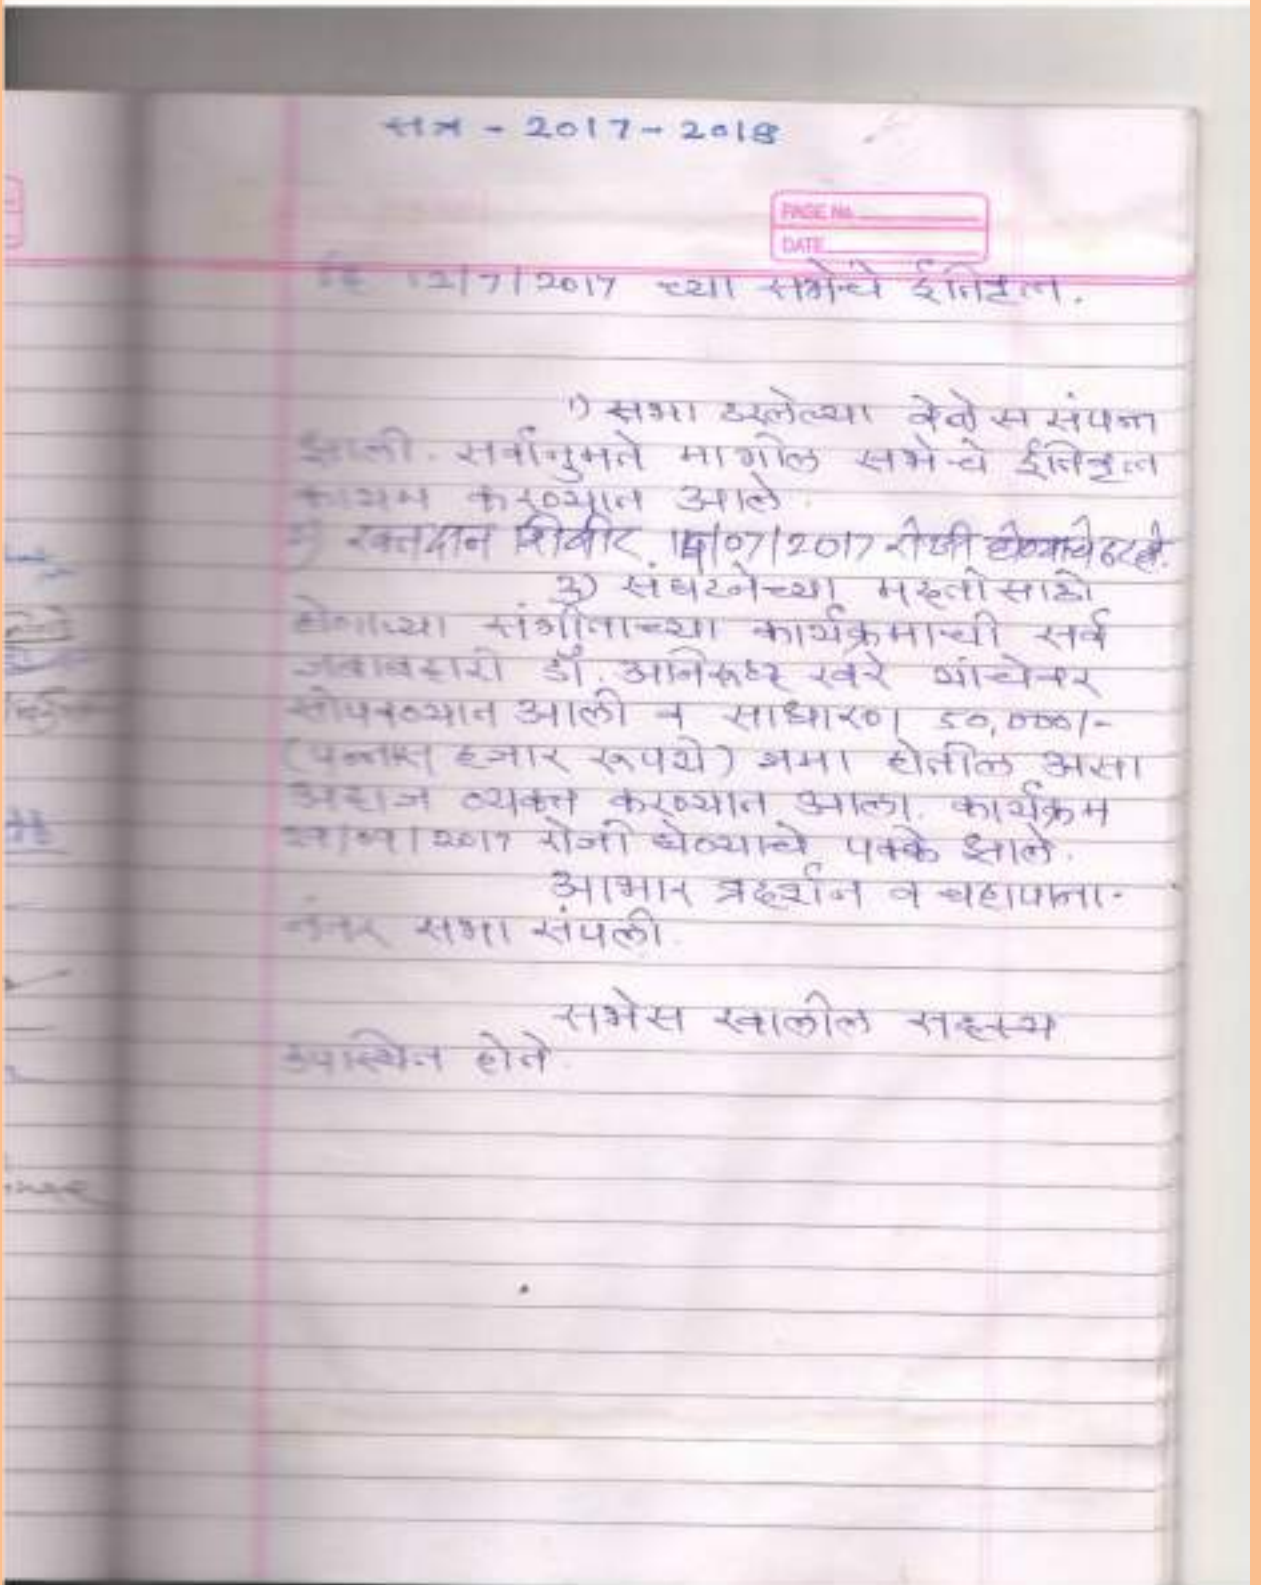 सत्र - 2017-2018
PAGE No.
DATE
दि 12/7/2017 च्या सभेचे ईतिवृत्त.
1) सभा ठरलेल्या वेळेस संपन्न
झाली. सर्वानुमते मागील सभेचे ईतिवृत्त
कायम करण्यात आले.
2) रक्तदान शिबीर /07/2017 रोजी घेण्याचे ठरले.
3) संघटनेच्या मदतीसाठी
होणाऱ्या संगीताच्या कार्यक्रमाची सर्व
जबाबदारी डॉ. अनिरूध्द खरे यांचेवर
सोपवण्यात आली व साधारण 50,000/-
(पन्नास हजार रूपये) जमा होतील असा
अंदाज व्यक्त करण्यात आला. कार्यक्रम
/2017 रोजी घेण्याचे पक्के झाले.
आभार प्रदर्शन व चहापाना-
नंतर सभा संपली.
सभेस खालील सदस्य
उपस्थित होते.